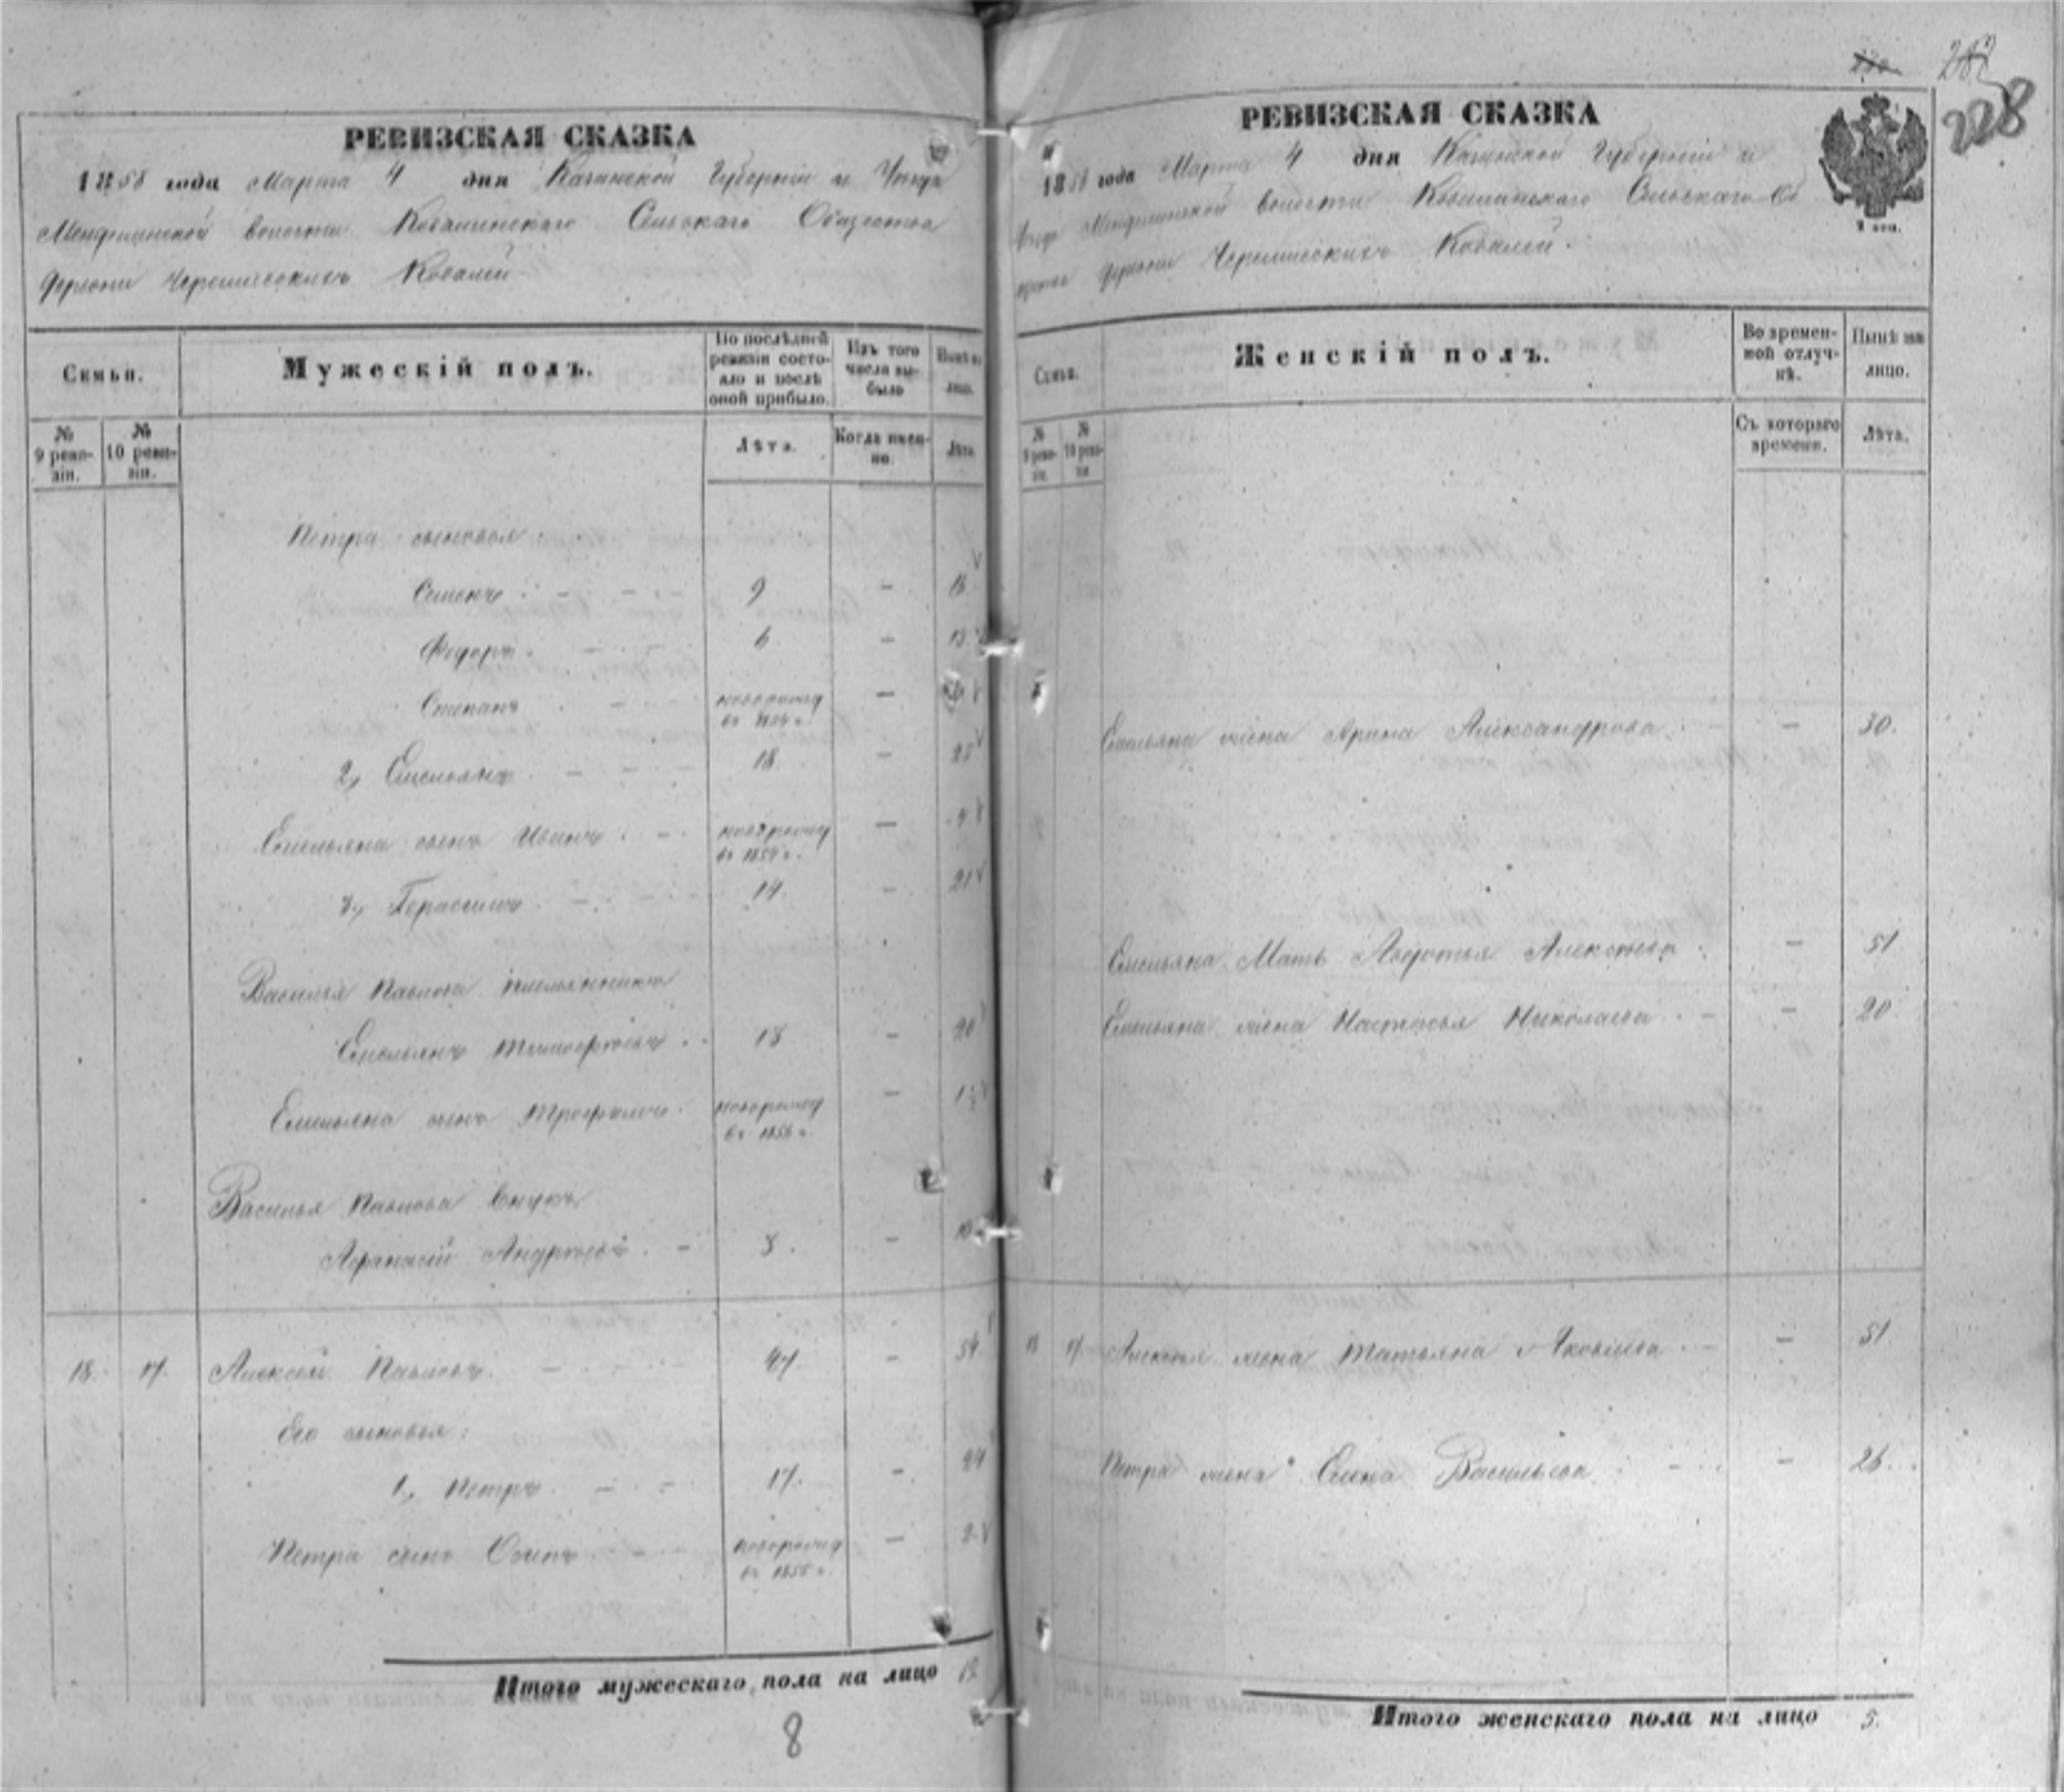 РЕВИЗСКАЯ СКАЗКА
1858 года Марта 4 дня Казанской Губерніи и Уѣзда
волости Сельскаго Общества
деревни Черемисскихъ Ковалей
Семьи.
Мужескій полъ.
По послѣдней ревизіи состояло и послѣ оной прибыло.
Изъ того числа выбыло
Нынѣ на лицо.
№ 9 ревизіи.
№ 10 ревизіи.
Лѣта.
Когда именно.
Лѣта.
Петра сыновья:
Семенъ 9 — 16
Федоръ 6 — 13
Степанъ новорожд —
въ 1854 г.
2, Емельянъ 18 — 25
Емельяна сынъ новорожд — 4
въ 1854 г.
3, Герасимъ 14 — 21
Василья Павлова племянникъ
Емельянъ Тимофѣевъ 13 — 20
Емельяна сынъ Трофимъ новорожд — 1½
въ 1856 г.
Василья Павлова внукъ
Афанасій Андрѣевъ 3 — 10
18 17 Алексѣй Павловъ 47 — 54
Его сыновья:
1, Петръ 17 — 24
Петра сынъ Осипъ новорожд — 2
въ 1855 г.
Итого мужескаго пола на лицо 12
8
282
228
РЕВИЗСКАЯ СКАЗКА
1858 года Марта 4 дня Казанской Губерніи и
волости Сельскаго Об
деревни Черемисскихъ Ковалей.
1 коп.
Семьи.
Женскій полъ.
Во временной отлучкѣ.
Нынѣ на лицо.
№ 9 ревизіи.
№ 10 ревизіи
Съ котораго времени.
Лѣта.
Емельяна жена Арина Александрова — 30.
Емельяна Мать Авдотья Алексѣева — 51
Емельяна жена Настасья Николаева — 20
18 17 Алексѣя жена Татьяна Яковлева — 51
Петра жена Елена Васильева — 26.
Итого женскаго пола на лицо 5.